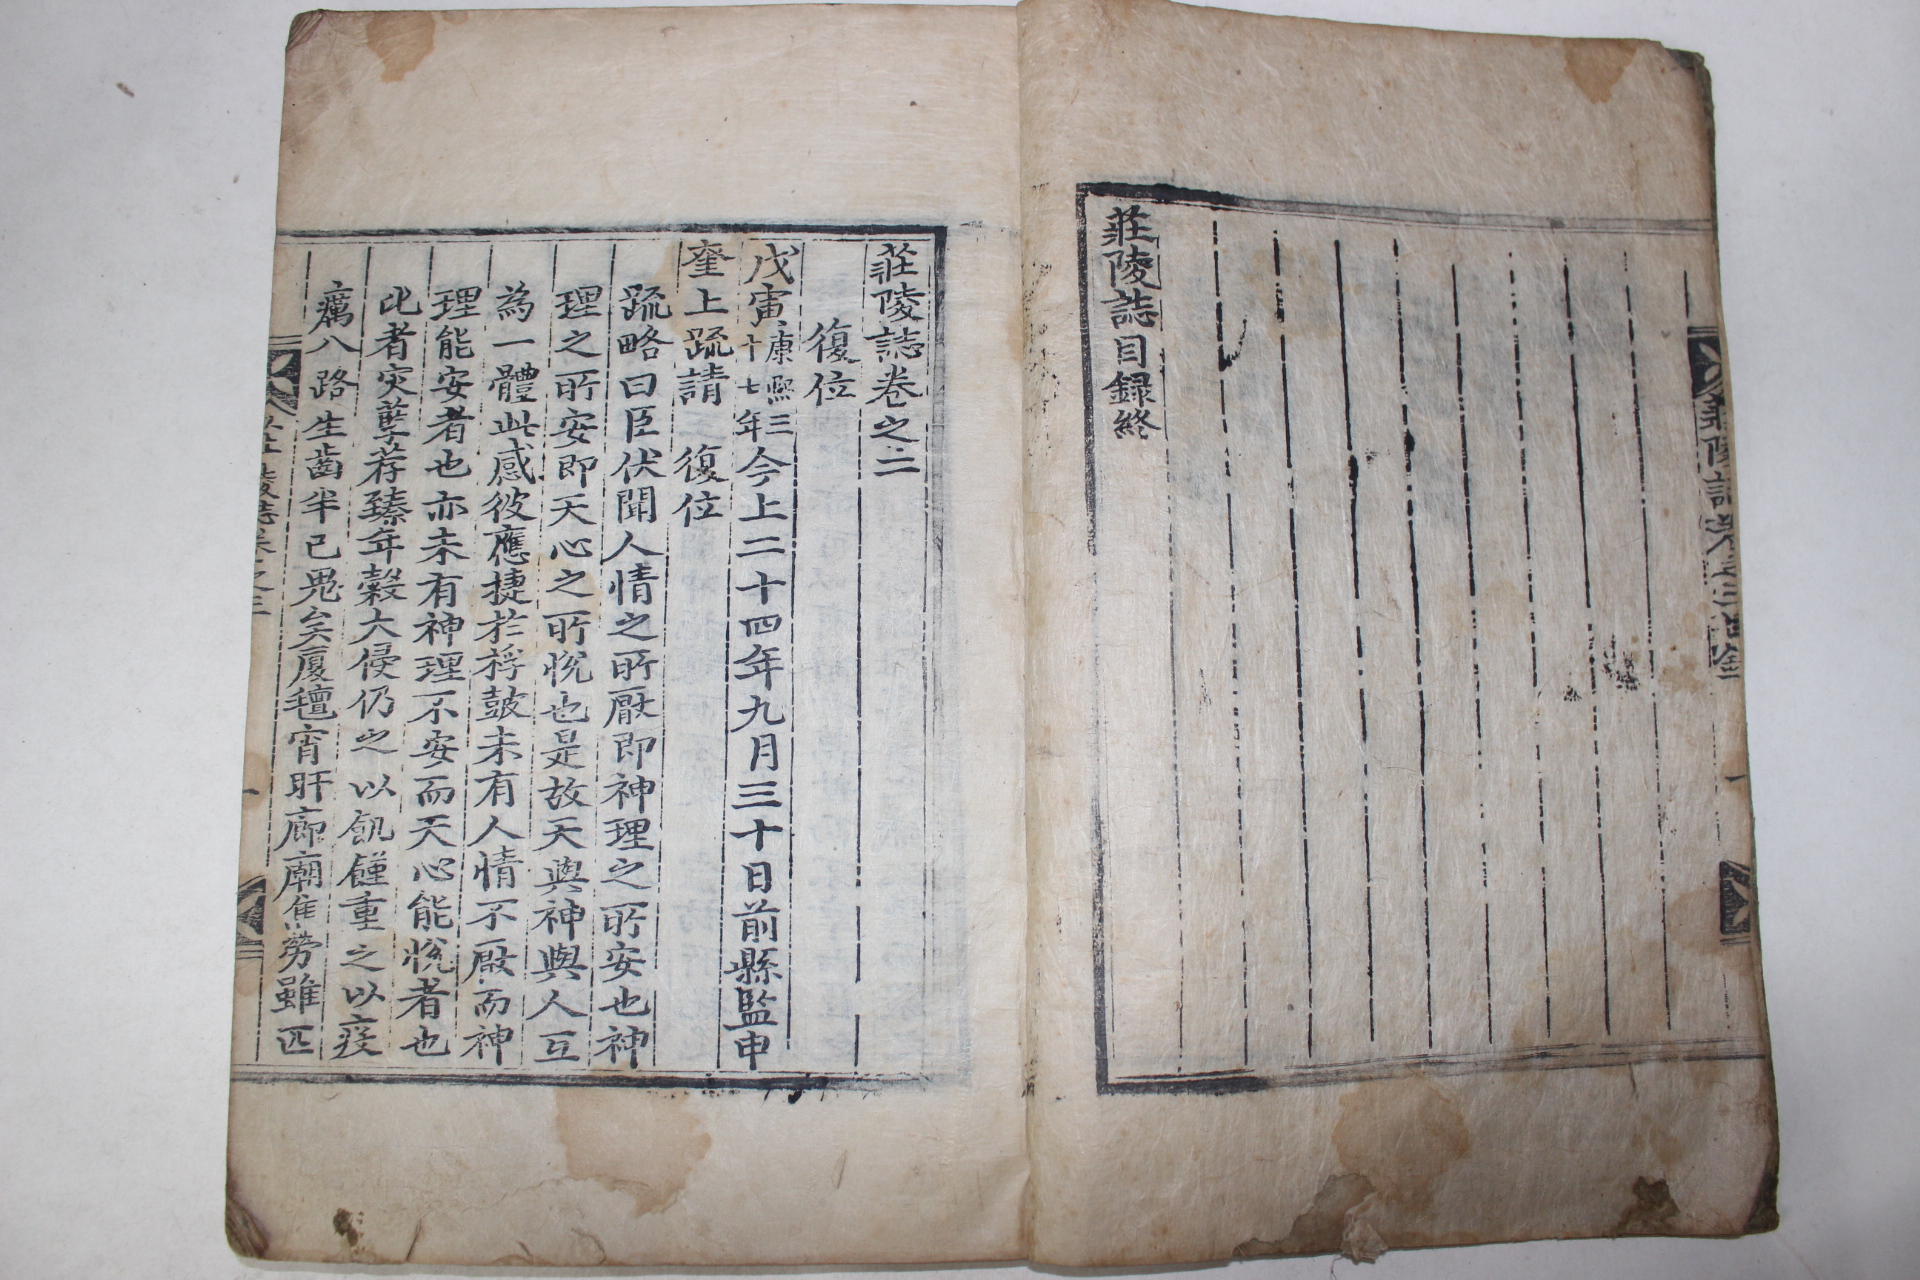 莊陵誌目錄終
莊陵誌卷之二
復位
戊寅康熙三十七年今上二十四年九月三十日前縣監申
奎上疏請 復位
疏略曰臣伏聞人情之所厭即神理之所安也神
理之所安即天心之所悅也是故天與神與人互
為一體此感彼應捷於桴鼓未有人情不厭而神
理能安者也亦未有神理不安而天心能悅者也
比者灾孽荐臻年穀大侵仍之以飢饉重之以疫
癘八路生齒半已鬼矣廈氊宵旰廊廟焦勞雖匹